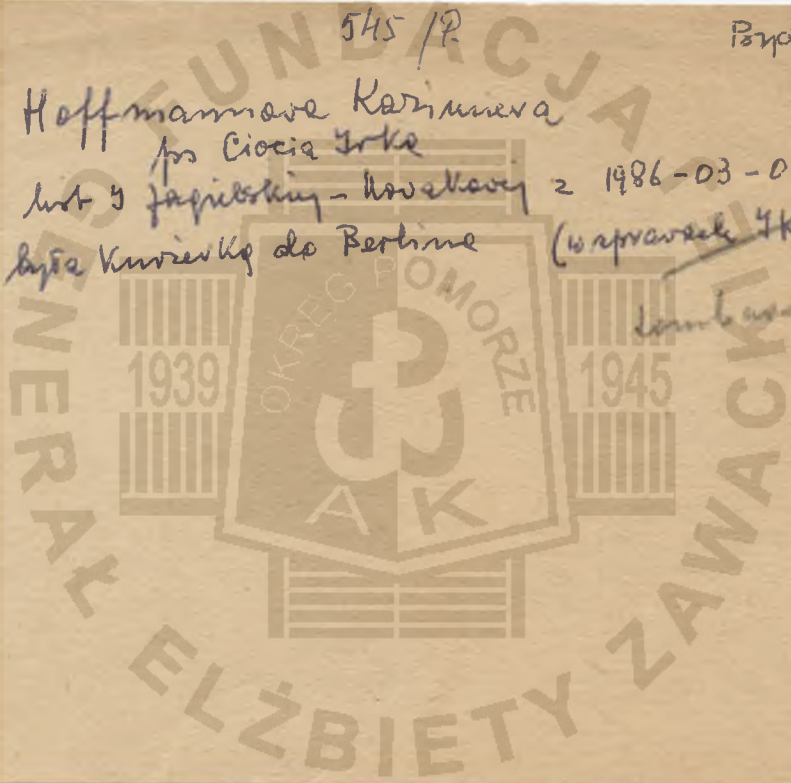 545/P.
Hoffmannowa Kazimiera
ps Ciocia Irka
list I Jagielskiej-Novakovej z 1986-03-0
była Kurierką do Berlina (w sprawach
FUNDACJA GENERAŁ ELŻBIETY ZAWACKIEJ
OKRĘG POMORZE
1939
1945
AK